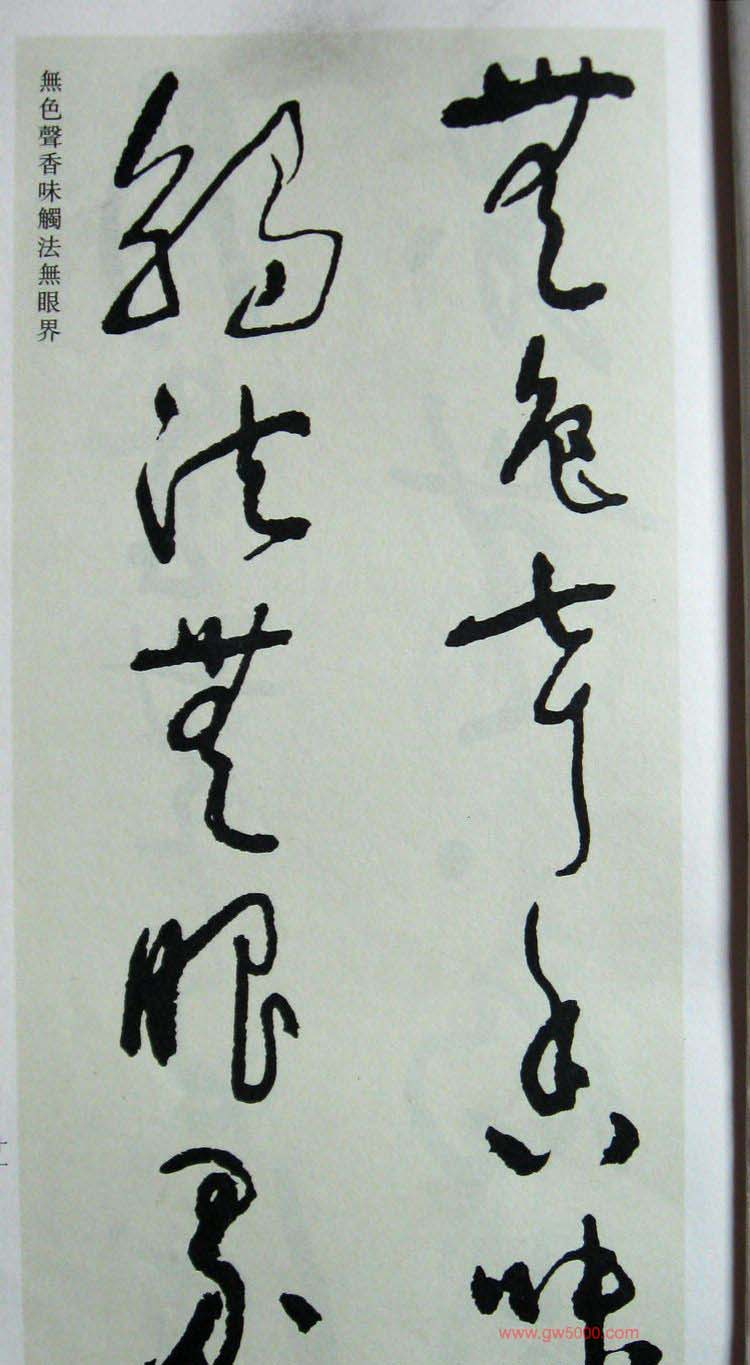 無色聲香味
觸法無眼界
無色聲香味觸法無眼界
十一
www.gw5000.com